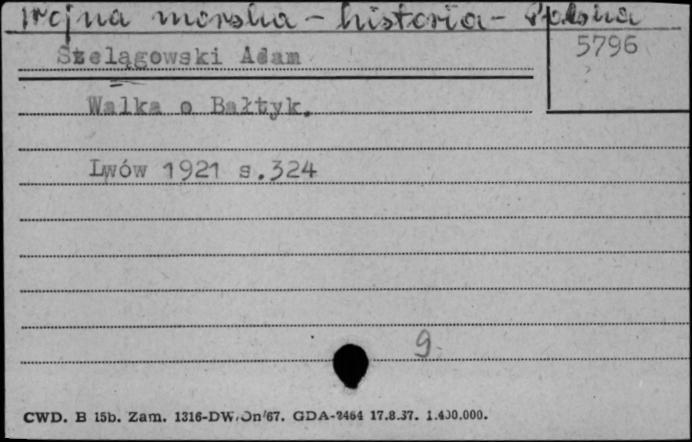 Wojna morska - historia - Polska
5796
Szelągowski Adam
Walka o Bałtyk.
Lwów 1921 s.324
9
CWD. B 15b. Zam. 1316-DW/On/67. GDA-2464 17.8.37. 1.400.000.